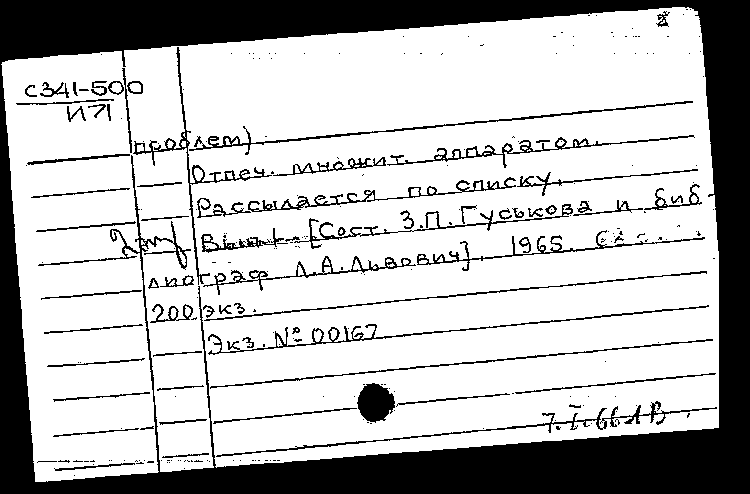 2
с341-500
И71
проблем).
Отпеч. множит. аппаратом.
Рассылается по списку.
Вып. [Сост. З.П. Гуськова и биб-
лиограф Л.А. Львович]. 1965.
200 экз.
Экз. № 00167
7.I.66 ЛВ.